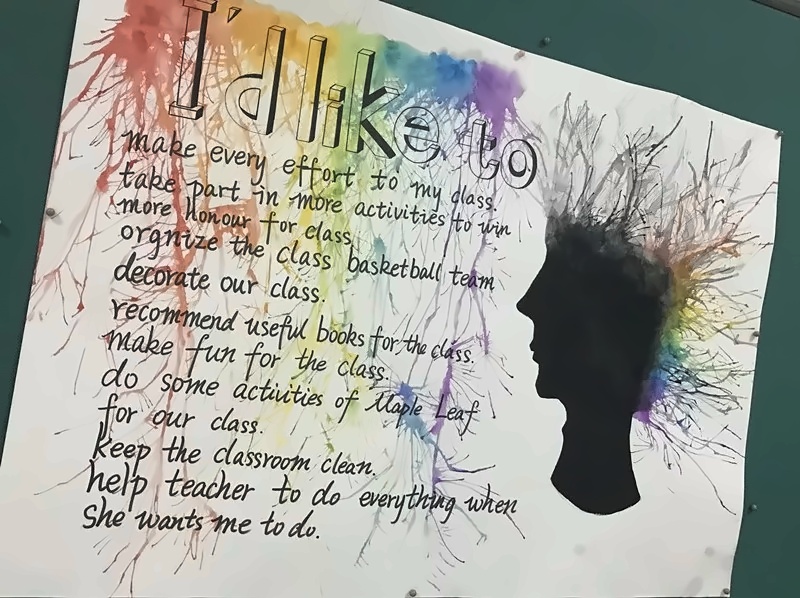 I'd like to
make every effort to my class.
take part in more activities to win
more honour for class.
orgnize the class basketball team
decorate our class.
recommend useful books for the class.
make fun for the class.
do some activities of Maple Leaf
for our class.
keep the classroom clean.
help teacher to do everything when
She wants me to do.